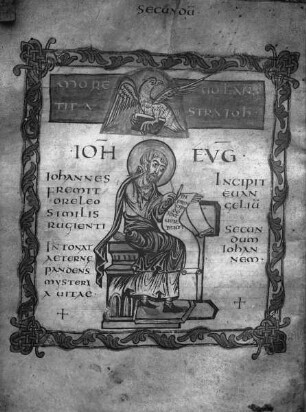 SECUNDŪ
STRA IOH
IOH̄ EVḠ
IOHANNES
FREMIT
ORE LEO
SIMILIS
RUGIENTI
INTONAT
AETERNE
PANDENS
MYSTERI
A UITAE
INCIPIT
EUAN
GELIŪ
SECUN
DUM
IOHAN
NEM·